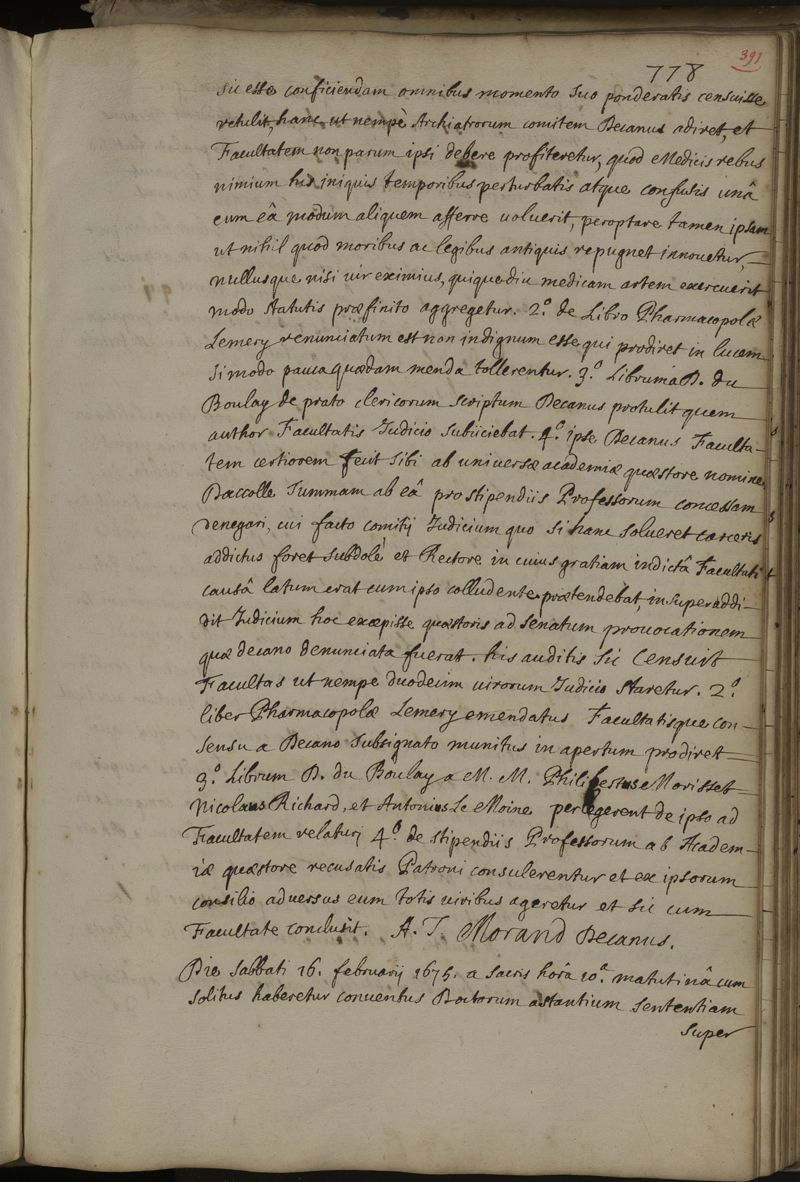 391
778
sic esse conficiendam omnibus momento suo ponderatis censuisse
retulit, hanc ut nempè Archiatrorum comitem Decanus adiret, et
Facultatem non parum ipsi debere profiteretur, quod Medicis rebus
nimium his iniquis temporibus perturbatis atque confusis unâ
cum eâ modum aliquem afferre voluerit, peroptare tamen ipsam
ut nihil quod moribus ac legibus antiquis repugnet innouetur,
nullusque nisi vir eximius, quique diu medicam artem exercuerit
modo statutis præfinito aggregetur. 2.º de Libro Pharmacopolæ
Lemery renunciatum est non indignum esse qui prodiret in lucem
si modo pauca quædam menda tollerentur. 3.º Librum a D. du
Boulay de prato clericorum scriptum Decanus protulit quem
author Facultatis Judicio subiiciebat. 4.º ipse Decanus Faculta-
tem certiorem fecit sibi ab universæ academiæ quæstore nomine
Daccolle summam ab eâ pro stipendiis Professorum concessam
denegari, cui facto comitij Judicium quo si hanc solueret carceris
addictus foret subdolè et Rectore in cuius gratiam indictâ Facultati
causâ latum erat cum ipso colludente prætendebat, insuper addi-
dit Judicium hoc excepisse quæstoris ad senatum prouocationem
quæ decano denunciata fuerat. his auditis sic Censuit
Facultas ut nempe duodecim virorum Judicio staretur. 2.º
liber Pharmacopolæ Lemery emendatus Facultatisque con-
sensu a Decano subsignato munitus in apertum prodiret
3.º Librum D. du Boulay a M. M. Philibertus Morisset
Nicolaus Richard, et Antonius Le Moine perlegerent de ipso ad
Facultatem relaturj 4.º de stipendiis Professorum ab Academ-
iæ quæstore recusatis Patroni consulerentur et ex ipsorum
consilio aduersus eum totis viribus ageretur et sic cum
Facultate conclusit. A. J. Morand Decanus.
Die sabbati 16. februarij 1675. a sacris horâ 10.ª matutinâ cum
solitus haberetur conuentus Doctorum astantium sententiam
super